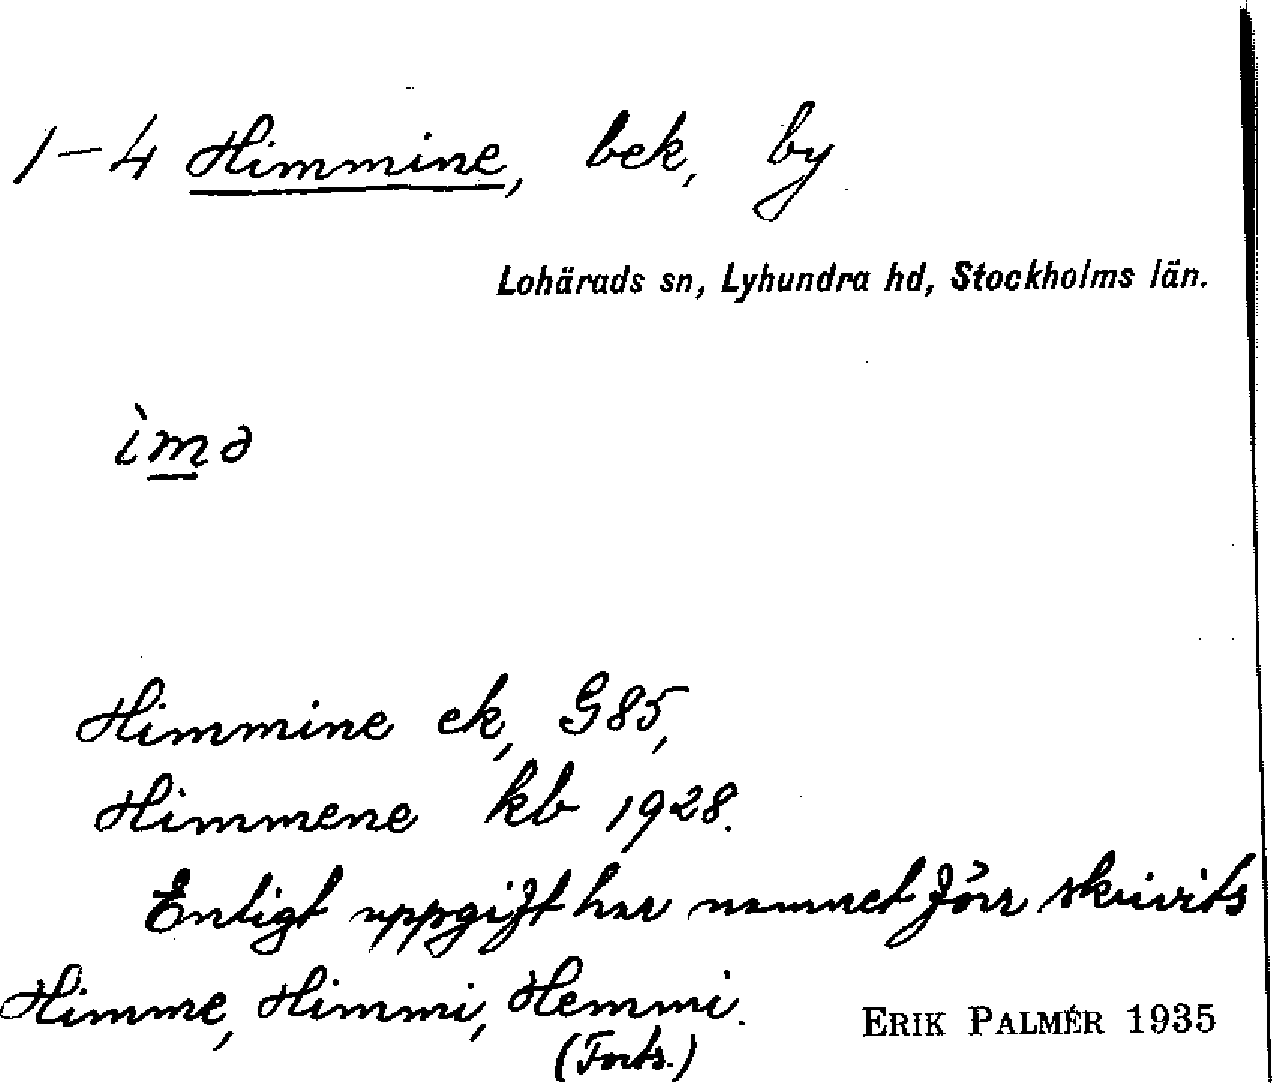 1-4 Himmine, bek, by
Lohärads sn, Lyhundra hd, Stockholms län.
ìm̲ə
Himmine ek, G85,
Himmene kb 1928.
Enligt uppgift har namnet förr skrivits
Himme, Himmi, Hemmi.
(Forts.)
ERIK PALMÉR 1935